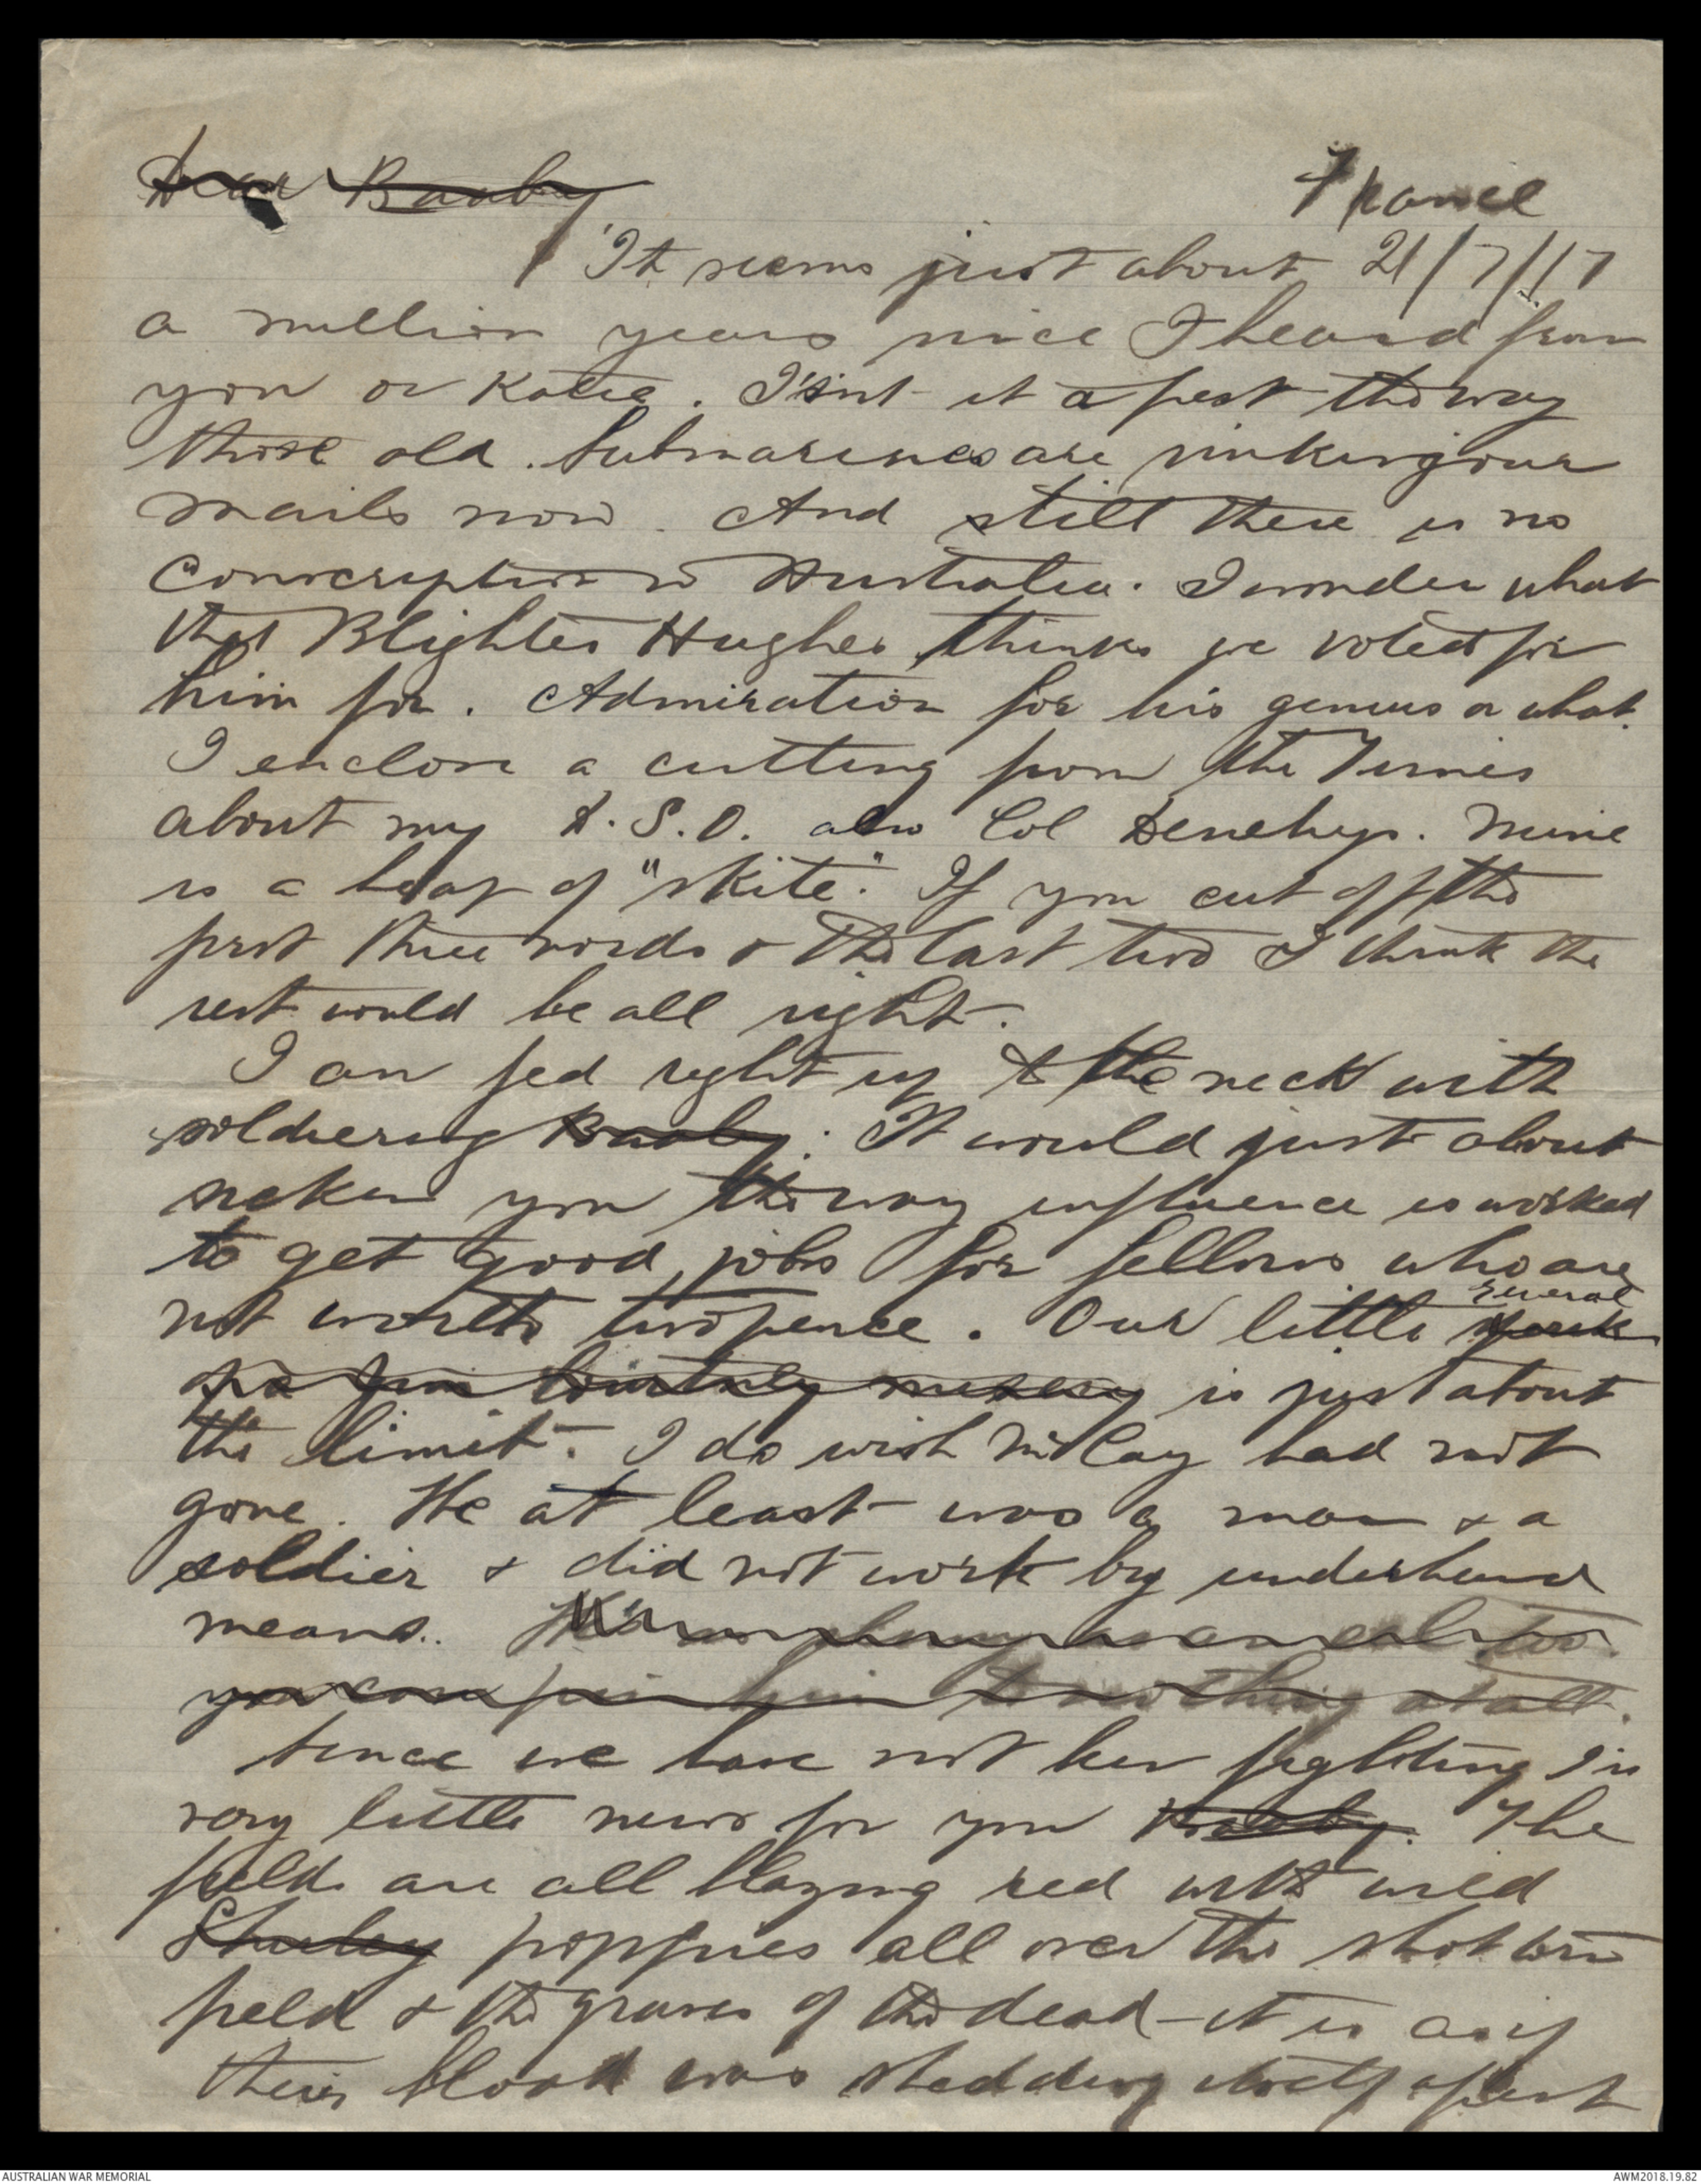 Dear Baaby France
It seems just about 21/7/17
a million years since I heard from
you or Katie. Is'nt it a pest the way
those old. Submarines are sinking our
mails now. And still there is no
Conscription in Australia. I wonder what
that Blighter Hughes thinks we voted for
him for. Admiration for his genius or what.
I enclose a cutting from the Times
about my D.S.O. also Col Denehys. Mine
is a heap of "skite". If you cut off the
first three words & the last two I think the
rest would be all right.
I am fed right up to the neck with
soldiering Baaby. It would just about
sicken you the way influence is worked
to get good jobs for fellows who are
not worth twopence. Our little general
is just about
the limit. I do wish McCay had not
gone. He at least was a man & a
soldier & did not work by underhand
means.
you can pin him to nothing at all.
Since we have not been fighting I is
very little news for you Baaby. The
fields are all blazing red with wild
Shirley poppies all over the shot torn
field & the graves of the dead - it is as if
their blood was shedding itself afresh
AUSTRALIAN WAR MEMORIAL AWM2018.19.82